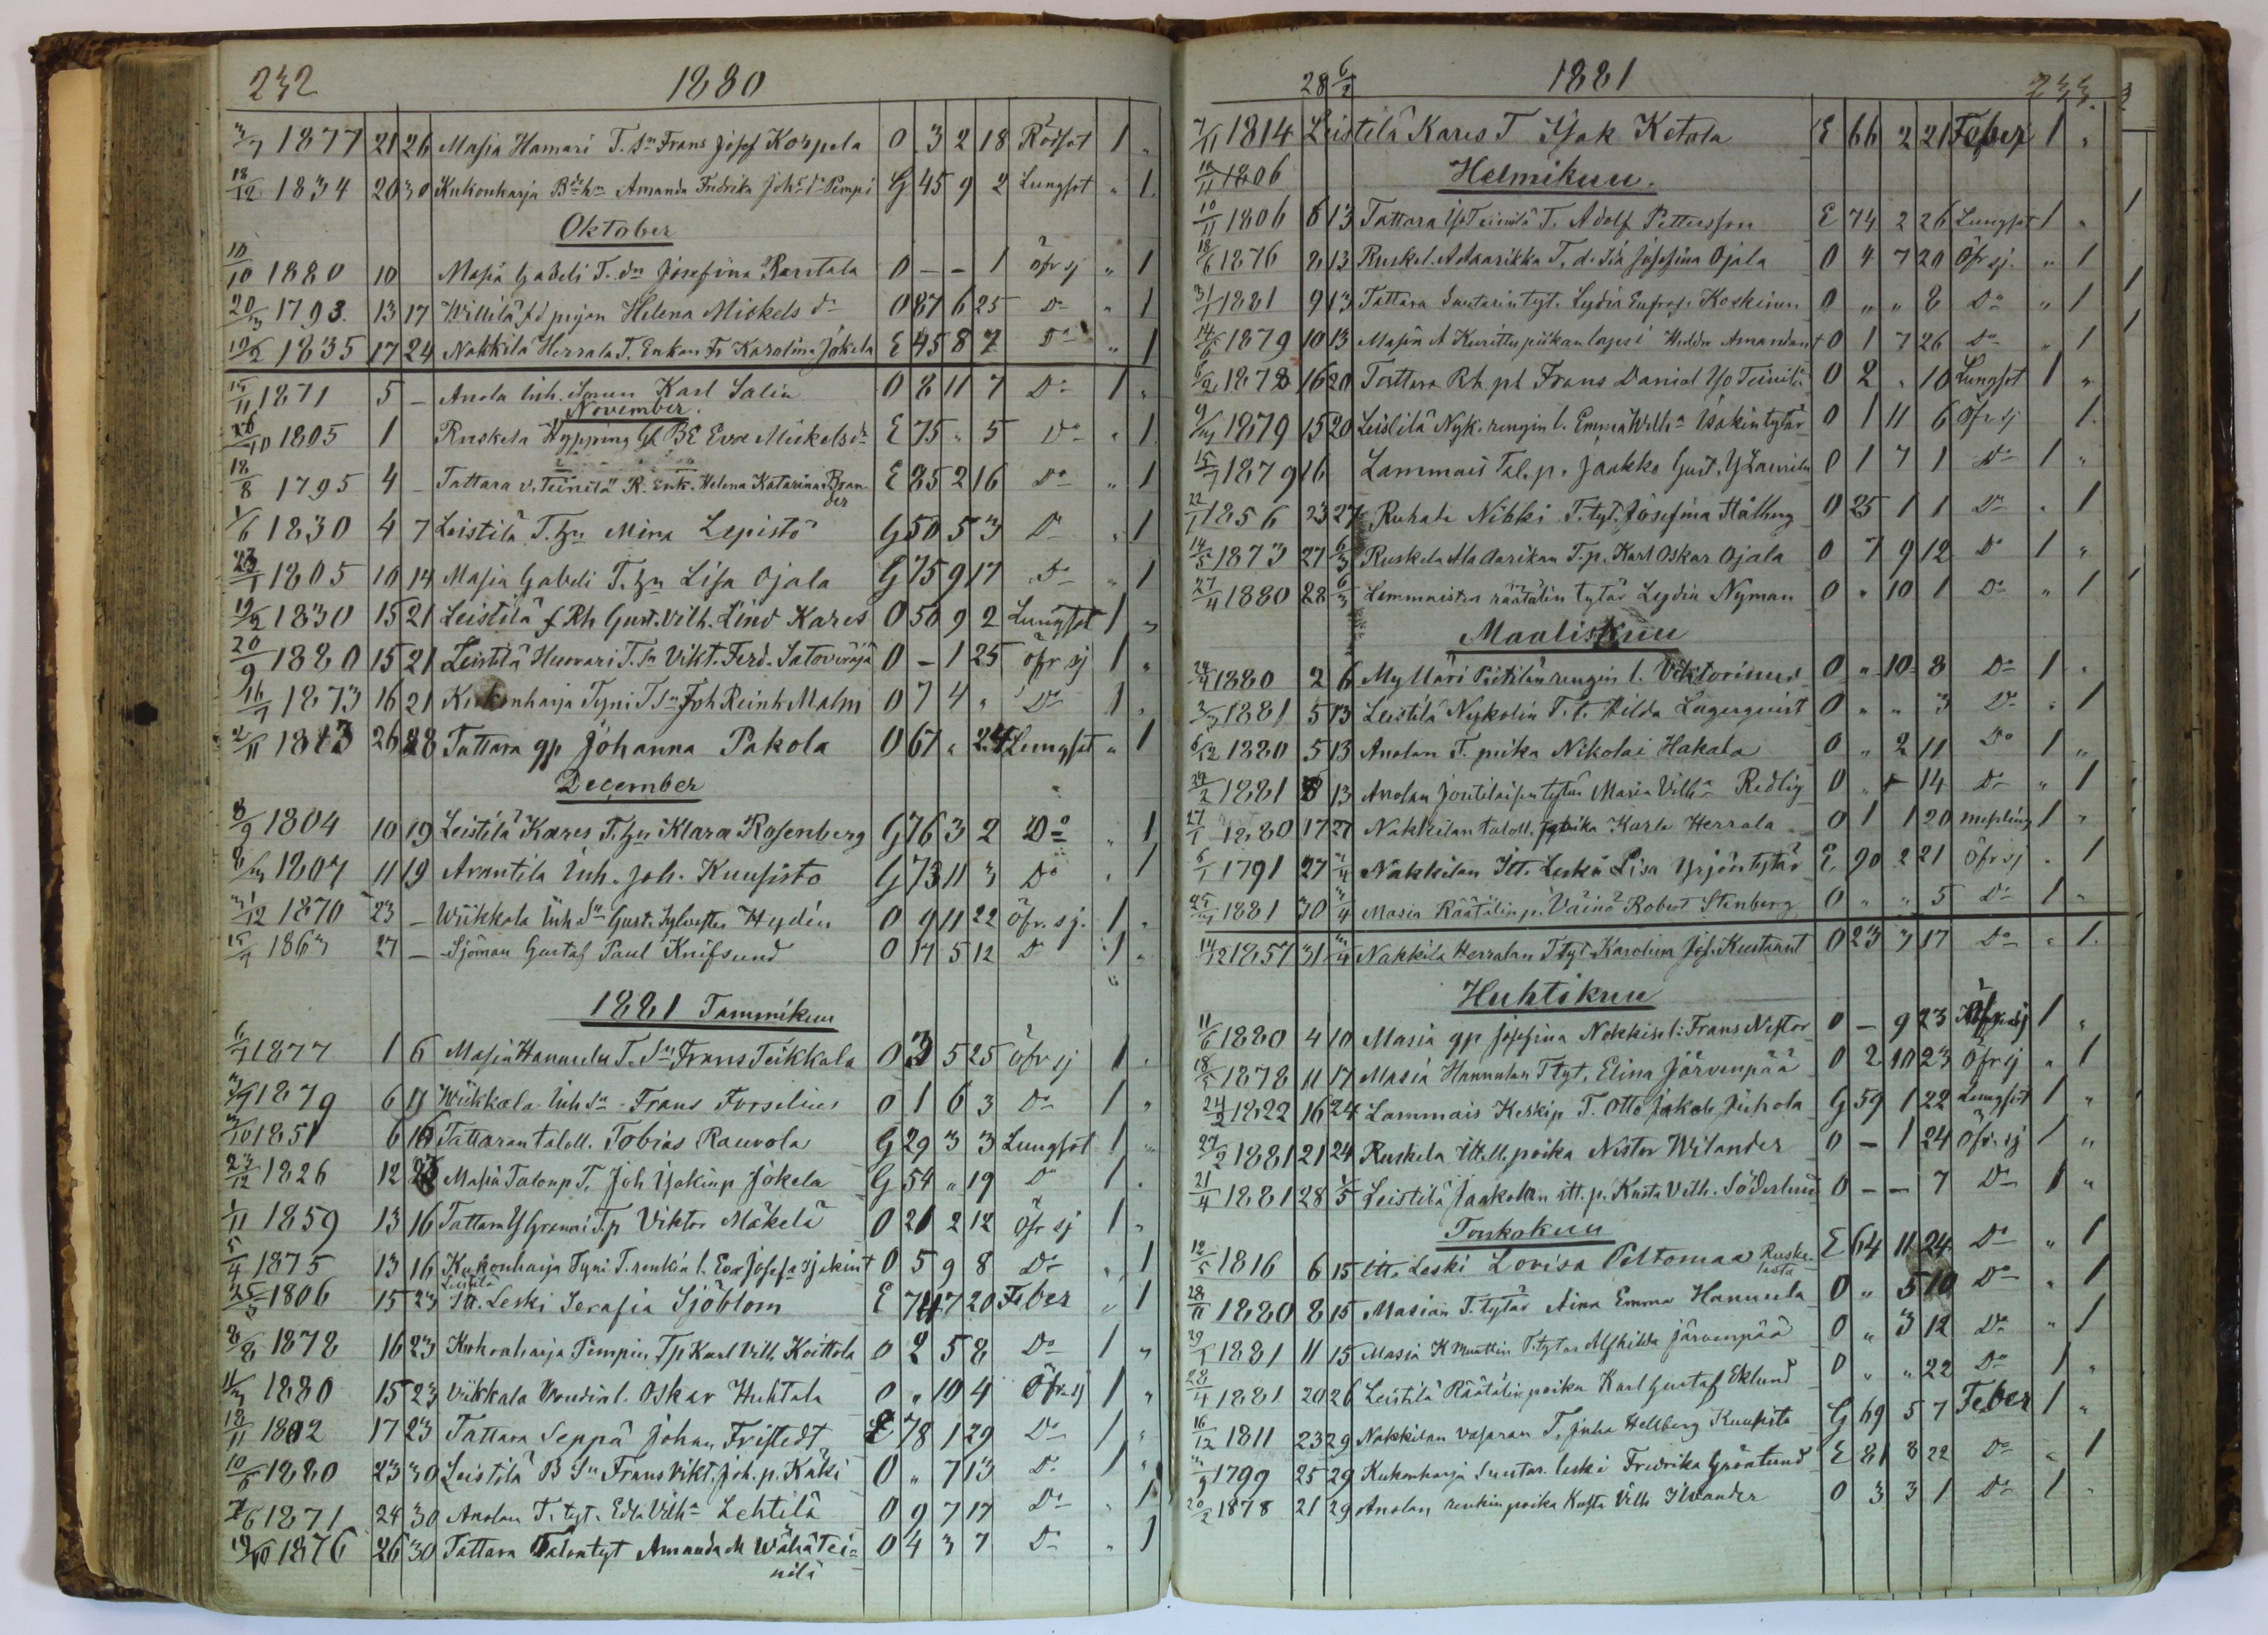 232 1880
3/7 1877 21 26 Masia Hamari T. Sn Frans Josef Korpela 0 3 2 18 Rödsot 1 „
18/12 1834 20 30 Kukonharja Amanda Fredrika Pimpi G 45 9 2 Lungsot „ 1
Oktober
10/10 1880 10 Masia Gabeli T. dr Josefina Rantala 0 – – 1 öfr sj „ 1
20/3 1793 13 17 Willilä pigan Helena Mickels dr 0 87 6 25 Do „ 1
10/2 1835 17 24 Nakkila Herrala T. Enkan Fr Karolina Jokela E 45 8 7 Do „ 1
1871 5 – Anola Inh. Sonen Karl Salin 0 8 11 7 Do 1 „
November
1805 1 Ruskela Hypping Eva Mickels dr E 75 „ 5 Do „ 1
18/8 1795 4 – Tattara v. Teinilä R. Enk. Helena Katarina Brander E 85 2 16 Do „ 1
1/6 1830 4 7 Leistilä T. hu Mina Lepistö G 50 5 3 Do „ 1
23/1 1805 10 14 Masia Gabeli T. hu Lisa Ojala G 75 9 17 Do „ 1
1830 15 21 Leistilä f Rh Gust. Vilh. Lind Kares 0 50 9 2 Lungsot 1 „
20/9 1880 15 21 Leistilä Huovari T. Sn Vikt. Ferd. Satoveräjä 0 – 1 25 öfr sj 1 „
16/7 1873 16 21 Kukonharja Tyni T Sn Joh Reinh Malm 0 7 4 „ Do 1 „
2/11 1813 26 28 Tattara gp Johanna Pakola 0 67 „ 24 Lungsot „ 1
December
8/9 1804 10 19 Leistilä Kares T. hu Klara Rosenberg G 76 3 2 Do „ 1
8/3 1807 11 19 Anantila Inh. Joh. Kuusisto G 73 11 3 Do „ 1
31/12 1870 23 – Wiikkala Inh Sn Gust. Sylvester Heyden 0 9 11 22 Öfr. sj. 1 „
15/7 1863 27 – Sjöman Gustaf Paul Knifsund 0 17 5 12 Do 1 „
1881 Tammikuu
6/7 1877 1 6 Masia Hannula T. Sn Frans Teikkala 0 3 5 25 öfr sj 1 „
1879 6 11 Wiikkala Inh Sn Frans Forselius 0 1 6 3 Do 1 „
3/10 1851 6 16 Tattaran taloll. Tobias Rauvola G 29 3 3 Lungsot 1 „
23/12 1826 12 Masia Talonp T. Joh Isakinp Jokela G 54 „ 19 Do 1 „
1/11 1859 13 16 Tattara T.p Viktor Mäkelä 0 21 2 12 Öfr sj 1 „
5/4 1875 13 16 Kukonharja Tyni T. renkin l. Eva Josefa Isakint 0 5 9 8 Do „ 1
Leistilä
25/5 1806 15 23 Itt. Leski Serafia Sjöblom E 74 7 20 Feber „ 1
8/8 1878 16 23 Kukonharja Pimpin Tp Karl Vilh Koittola 0 2 5 8 Do 1 „
11/3 1880 15 23 Viikkala Voudin l. Oskar Huhtala 0 „ 10 4 Öfr sj 1 „
18/11 1802 17 23 Tattara Seppä Johan Fristedt E 78 1 29 Do 1 „
10/6 1880 23 30 Leistilä B Sn Frans Vikt. Joh. p. Käki 0 „ 7 13 Do 1 „
7/6 1871 24 30 Anolan T. tyt. Edla Vilh:a Lehtilä 0 9 7 17 Do „ 1
19/10 1876 26 30 Tattara Talontyt Amanda M Wähä Teinilä 0 4 3 7 Do „ 1
28 6/2 1881 233
7/11 1814 Leistilä Kares T Isak Ketola E 66 2 21 Feber 1 „
10/11 1806 Helmikuu.
10/11 1806 6 13 Tattara Iso Teinilä T. Adolf Pettersson E 74 2 26 Lungsot 1 „
18/6 1876 8 13 Ruskel. A Maarikka T. d. Ida Josefina Ojala 0 4 7 20 Öfr sj. „ 1
31/1 1881 9 13 Tattara Suutarin tyt. Lydia Eufros. Koskinen 0 „ „ 8 Do „ 1
14/6 1879 10 13 Masia A Kurittu piikan lapsi Hilda Amandant 0 1 7 26 Do „ 1
6/2 1878 16 20 Tattara Rh. pk Frans Daniel Iso Teinilä 0 2 „ 10 Lungsot 1 „
9/3 1879 15 20 Leistilä Nyk. rengin l. Emma Wilh:a Isakintytär 0 1 11 6 Öfr sj 1.
15/7 1879 16 Lammais Tal. p. Jaakko Gust. Y Laurila 0 1 7 1 Do 1 „
22/1 1856 23 27 Ruhade Nikki T. tyt. Josefina Hällberg 0 25 1 1 Do „ 1
14/5 1873 27 6/3 Ruskela Ala Aarikan T. p. Karl Oskar Ojala 0 7 9 12 Do 1 „
27/4 1880 28 6/3 Lemmaisten räätälin tytär Lydia Nyman 0 „ 10 1 Do „ 1
Maaliskuu
1880 2 6 Mylläri Pietilän rengin l. Viktorinus 0 „ 10 8 Do 1 „
3/3 1881 5 13 Leistilä Nykolin T. t. Hilda Lagerqvist 0 „ „ 3 Do „ 1
6/12 1880 5 13 Anolan T. poika Nikolai Hakala 0 „ 2 11 Do 1 „
22/2 1881 8 13 Anolan Joutilaisen tytär Maria Vilh:a Redlig 0 „ – 14 Do „ 1
27/1 1880 17 27 Nakkilan taloll. poika Karle Herrala 0 1 1 20 mesling 1 „
6/1 1791 27 3/4 Nakkilan Itt. Leski Lisa Yrjöntytär E 90 2 21 öfr sj „ 1
25/3 1881 30 3/4 Masia Räätälin p. Väinö Robert Stenberg 0 „ „ 5 Do 1 „
14/12 1857 31 3/4 Nakkila Herralan T tyt Karolina Jos. Kustaant 0 23 3 17 Do „ 1.
Huhtikuu
11/6 1880 4 10 Masia gp Josefina Nokkis l: Frans Nestor 0 – 9 23 Öfr sj 1 „
18/5 1878 11 17 Masia Hannulan T tyt. Elina Järvenpää 0 2 10 23 Öfr sj „ 1
24/2 1822 16 24 Lammais Keskip T. Otto Jakob Juhola G 59 1 22 Lungsot 1 „
27/2 1881 21 24 Ruskela Itt. poika Nestor Wilander 0 – 1 24 Öfr. sj 1 „
21/4 1881 28 1/5 Leistilä Jaakolan itt. p. Kusta Vilh. Söderlund 0 – – 7 Do 1 „
Toukokuu
12/5 1816 6 15 Itt. Leski Lovisa Peltomaa Ruskelasta E 64 11 24 Do „ 1
28/11 1880 8 15 Masian T. tytär Aina Emma Hannula 0 „ 5 10 Do „ 1
29/1 1881 11 15 Masia K Muuttin T. tytar Mathilda Järvenpää 0 „ 3 12 Do „ 1
28/4 1881 20 26 Leistilä Räätälin poika Karl Gustaf Eklund 0 „ „ 22 Do 1 „
16/12 1811 23 29 Nakkilan Vasaran T. Juha Hellberg Kuusisto G 69 5 7 Feber 1 „
3/9 1799 25 29 Kukonharja Suutar. leski Fredrika Grönlund E 81 8 22 Do „ 1
20/2 1878 21 29 Anolan renkin poika Kusta Vilh Ilvander 0 3 3 1 Do 1 „